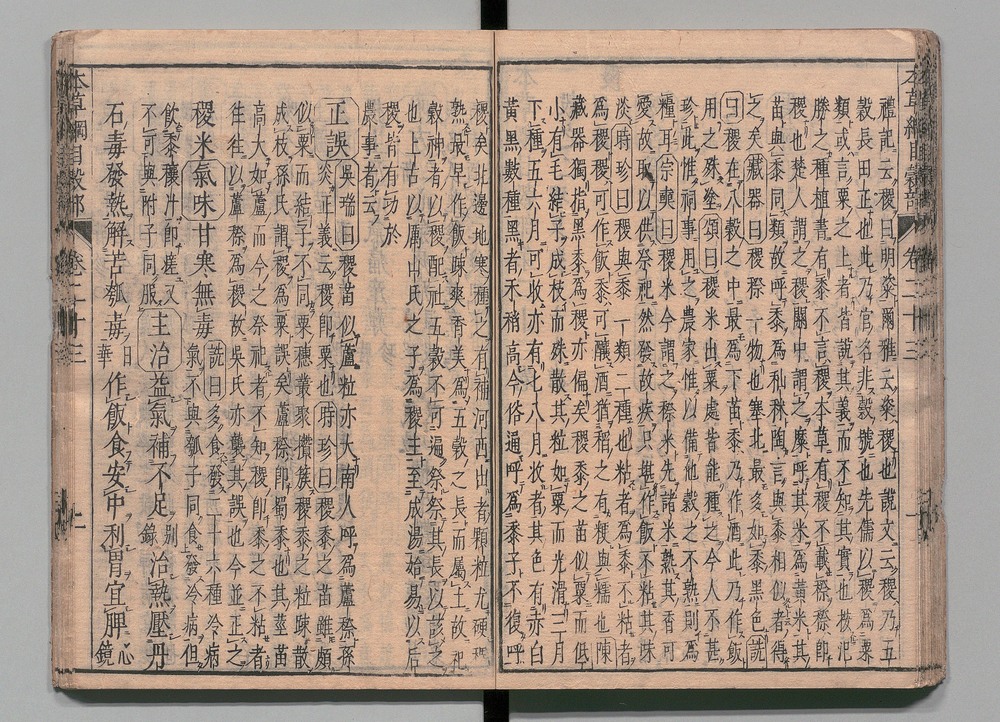 禮記云稷曰明粢爾雅云粢稷也說文云稷乃五
穀長田正也此乃官名非穀號也先儒以稷爲粟
類或言粟之上者皆說其義而不知其實也按氾
勝之種植書有黍不言稷本草有稷不載穄穄即
稷也楚人謂之稷關中謂之穈呼其米爲黃米其
苗與黍同類故呼黍爲秈秫陶言黍與稷相似者得
之矣藏器曰稷穄一物也塞北最多如黍黑色詵
曰稷在八穀之中最爲下苗黍乃作酒此乃作飯
用之殊塗頌曰稷米出粟處皆能種之今人不甚
珍此惟祠事用之農家惟以備他穀之不熟則爲
糧耳宗奭曰稷米今謂之穄米先諸米熟其香可
愛故取以供祭祀然發故疾只堪作飯不粘其味
淡時珍曰稷與黍一類二種也粘者爲黍不粘者
爲稷稷可作飯黍可釀酒猶稻之有粳與糯也陳
藏器獨指黑黍爲稷亦偏矣稷黍之苗似粟而低
小有毛結子成枝而殊散其粒如粟而光滑三月
下種五六月可收亦有七八月收者其色有赤白
黃黑數種黑者禾稍高今俗通呼爲黍子不復呼
稷矣北邊地寒種之有補河西出者顆粒尤硬稷
熟最早作飯疎爽香美爲五穀之長而屬土故祀
穀神者以稷配社五穀不可遍祭祭其長以該之
也上古以厲山氏之子爲稷主至成湯始易以后
稷皆有功於
農事者云
正誤吳瑞曰稷苗似蘆粒亦大南人呼爲蘆穄孫
炎正義云稷即粟也時珍曰稷黍之苗雖頗
似粟而結子不同粟穗叢聚攢簇稷黍之粒疎散
成枝孫氏謂稷爲粟誤矣蘆穄即蜀黍也其莖苗
高大如蘆而今之祭祀者不知稷即黍之不粘者
往往以蘆穄爲稷故吳氏亦襲其誤也今並正之
稷米氣味甘寒無毒詵曰多食發二十六種冷病
氣不與瓠子同食發冷病但
飲黍穰汁即瘥又
不可與附子同服主治益氣補不足別錄治熱壓丹
石毒發熱解苦瓠毒日華作飯食安中利胃宜脾心鏡
本草綱目穀部
卷二十三